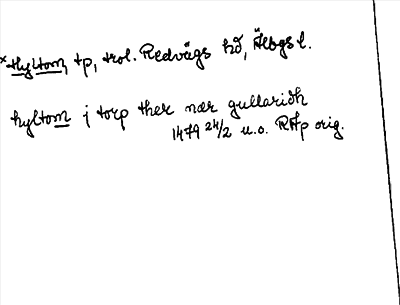 *Hyltom, tp, trol. Redvägs hd, Älvgs l.
hyltom j torp ther nær gullaridh
1479 24/2 u.o. RAp orig.